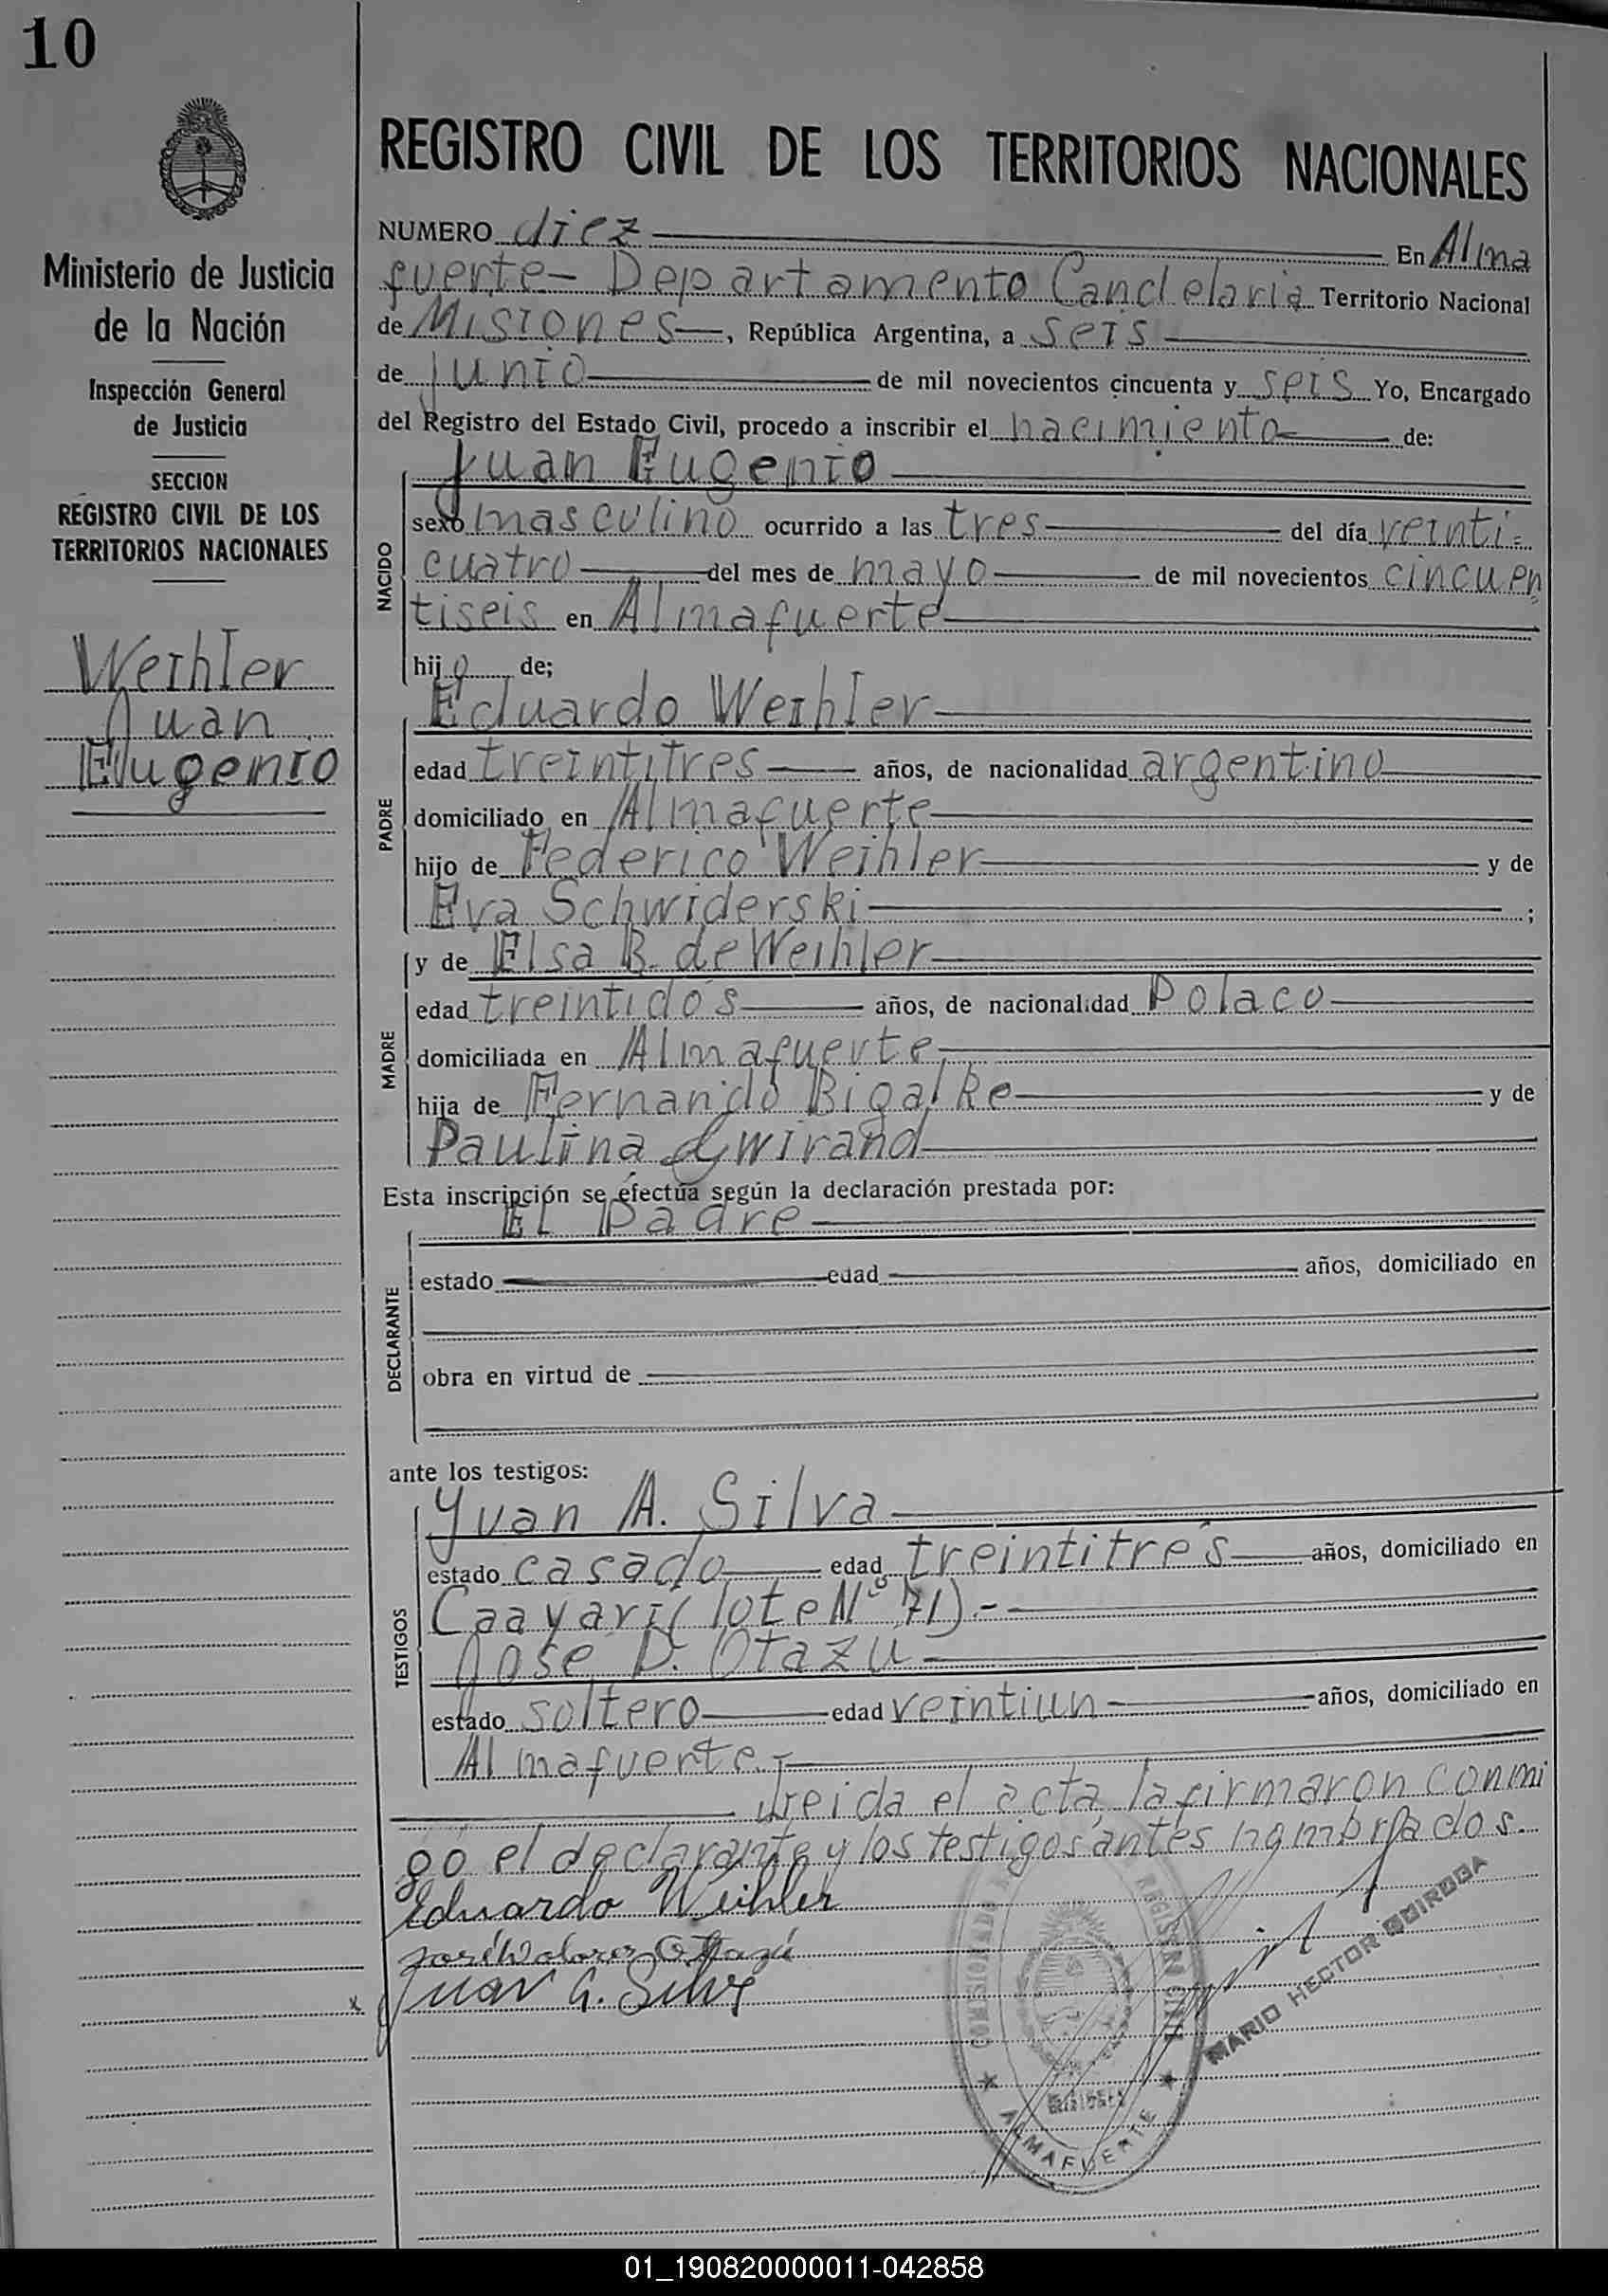 10
Ministerio de Justicia
de la Nación
Inspección General
de Justicia
SECCION
REGISTRO CIVIL DE LOS
TERRITORIOS NACIONALES
Weihler
Juan
Eugenio
REGISTRO CIVIL DE LOS TERRITORIOS NACIONALES
NUMERO diez En Alma
fuerte- Departamento Candelaria Territorio Nacional
de Misiones, República Argentina, a seis
de junio de mil novecientos cincuenta y seis Yo, Encargado
del Registro del Estado Civil, procedo a inscribir el nacimiento de:
Juan Eugenio
NACIDO
sexo masculino ocurrido a las tres del día veinti=
cuatro del mes de mayo de mil novecientos cincuen=
tiseis en Almafuerte
hijo de;
Eduardo Weihler
PADRE
edad treintitres años, de nacionalidad argentino
domiciliado en Almafuerte
hijo de Federico Weihler y de
Eva Schwiderski ;
y de Elsa B. de Weihler
MADRE
edad treintidós años, de nacionalidad Polaco
domiciliada en Almafuerte
hija de Fernando Bigalke y de
Paulina
Esta inscripción se efectúa según la declaración prestada por:
El Padre
DECLARANTE
estado edad años, domiciliado en
obra en virtud de
ante los testigos:
Juan A. Silva
TESTIGOS
estado casado edad treintitrés años, domiciliado en
Caayari (lote Nº 71).-
Jose D. Otazu
estado soltero edad veintiun años, domiciliado en
Almafuerte.-
Leida el acta, la firmaron conmi
go el declarante y los testigos antes nombrados.
Eduardo Weihler
Juan A. Silva
MARIO HECTOR QUIROGA
REGISTRO CIVIL
ALMAFUERTE
01_190820000011-042858